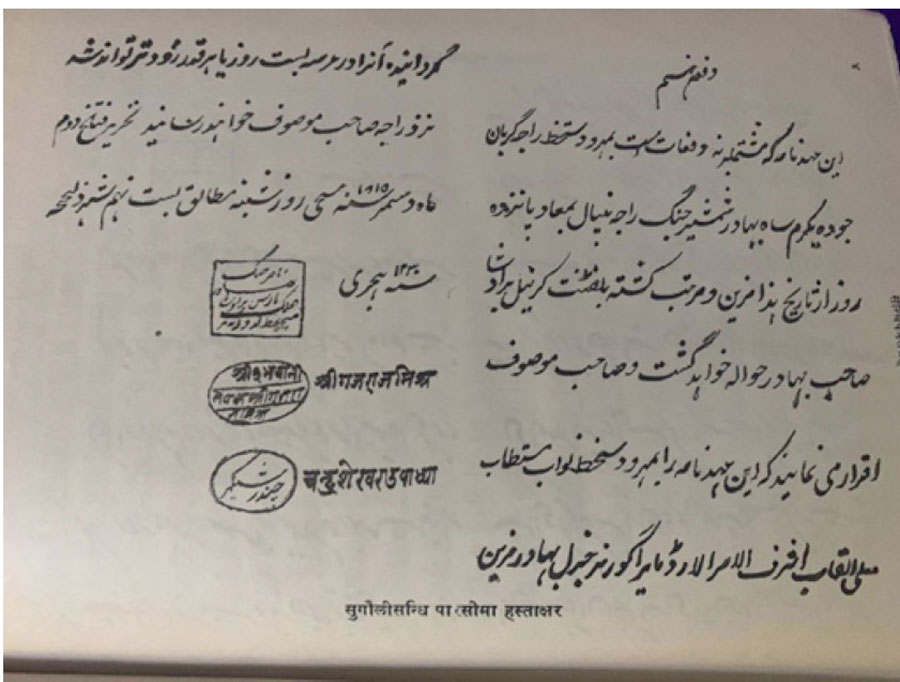 دفعه نهم
این عهد نامه که مشتمله نه دفعات است بمهر و دستخط راجه گربان
جوده بکرم ساه بهادر شمشیر جنگ راجه نیپال بمعاد پانزده
روز از تاریخ هذا مزین و مرتب گشته بلفتنت کرنیل برادشا
صاحب بهادر حواله خواهد گشت و صاحب موصوف
اقرار می نمایند که این عهد نامه را بمهر و دستخط نواب مستطاب
معلی القاب اشرف الامرا لارڈ مایرا گورنر جنرل بهادر مزین
گردانیده آنرا در عرصه بست روز یا هر قدر زودتر تواند شد
نزد راجه صاحب موصوف خواهند رسانید تحریر فتاریخ دوم
ماه دسمبر ۱۸۱۵ سنه مسیحی روز شنبه مطابق بست نهم شهر ذیحجه
سنه ۱۲۳۰ هجری
श्री ५ भवानी
श्रीगजराजमिश्र
चन्द्रशेखरउपाध्या
सुगौलीसन्धि पारसीमा हस्ताक्षर